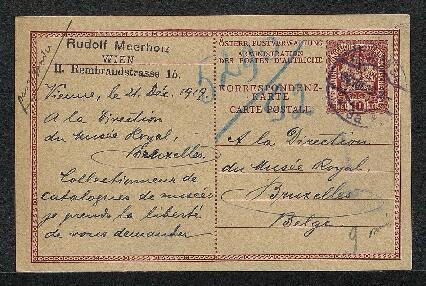 Rudolf Meerholz
WIEN
II. Rembrandtstrasse 15.
Vienne, le 21. Déc. 1919.
A la Direction
du Musée Royal,
Bruxelles.
Collectionneur de
catalogues de musée
je prends la liberté
de vous demander
ÖSTERR. POSTVERWALTUNG
ADMINISTRATION
DES POSTES D'AUTRICHE
KORRESPONDENZ-
KARTE
CARTE POSTALE
10
A la Direction
du Musée Royal,
Bruxelles
Belge